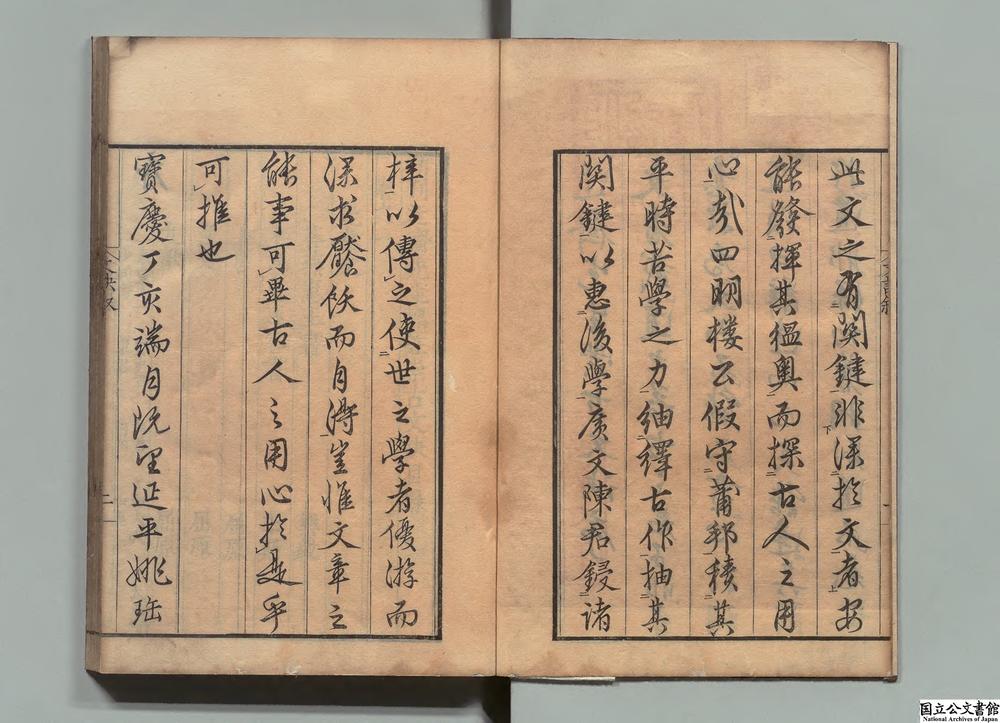 此文之有関鍵非深於文者安
能發揮其緼奧而探古人之用
心哉四明楼公假守莆邦積其
平時苦學之力紬繹古作抽其
関鍵以惠後學廣文陳君鋟諸
梓以傳之使世之學者優游而
深求饜飫而自得豈惟文章之
能事可畢古人之用心於是乎
可推也
寶慶丁亥端月既望延平姚珤
国立公文書館
National Archives of Japan